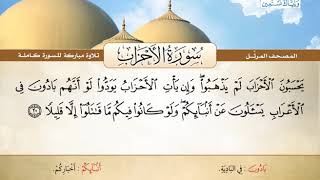 المصحف المرتل
سورة الأحزاب
تلاوة مباركة للسورة كاملة
يَحْسَبُونَ الْأَحْزَابَ لَمْ يَذْهَبُوا وَإِن يَأْتِ الْأَحْزَابُ يَوَدُّوا لَوْ أَنَّهُم بَادُونَ فِي
الْأَعْرَابِ يَسْأَلُونَ عَنْ أَنبَائِكُمْ وَلَوْ كَانُوا فِيكُم مَّا قَاتَلُوا إِلَّا قَلِيلًا ٢٠
بَادُونَ : فِي البَادِيَةِ.
أَنْبَائِكُمْ : أَخْبَارِكُمْ.